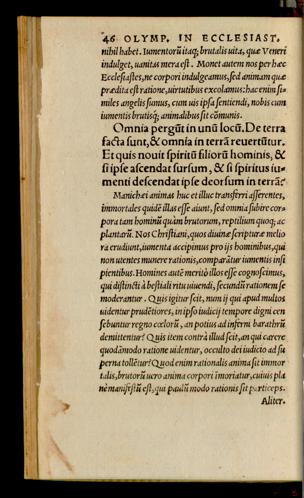 46 OLYMP. IN ECCLESIAST.
nihil habet. Iumentorũ itaq; brutalis uita, quæ Veneri
indulget, uanitas mera est. Monet autem nos per hæc
Ecclesiastes, ne corpori indulgeamus, sed animam quæ
prædita est ratione, uirtutibus excolamus: hac enim si-
miles angelis sumus, cum uis ipsa sentiendi, nobis cum
iumentis brutisq; animalibus sit cõmunis.
Omnia pergũt in unũ locũ. De terra
facta sunt, & omnia in terrã reuertũtur.
Et quis nouit spiritũ filiorũ hominis, &
si ipse ascendat sursum, & si spiritus iu-
menti descendat ipse deorsum in terrã?
Manichæi animas huc et illuc transferri asserentes,
immortales quidẽ illas esse aiunt, sed omnia subire cor-
pora tam hominũ quàm brutorum, reptilium quoq; ac
plantarũ. Nos Christiani, quos diuinæ scripturæ melio
ra erudiunt, iumenta accipimus pro ijs hominibus, qui
non utentes munere rationis, comparãtur iumentis insi
pientibus. Homines autẽ meritò illos esse cognoscimus,
qui distincti à bestiali ritu uiuendi, secundũ rationem se
moderantur. Quis igitur scit, num ij qui apud multos
uidentur prudẽtiores, in ipso iudicij tempore digni cen
sebuntur regno cœlorũ, an potius ad inferni barathrũ
demittentur? Quis item contrà illud scit, an qui carere
quodãmodo ratione uidentur, occulto dei iudicio ad su
perna tollẽtur? Quod enim rationalis anima sit immor
talis, brutorũ uero anima corpori ĩmoriatur, cuiuis pla
nè manifestũ est, qui paulũ modo rationis sit particeps.
Aliter.